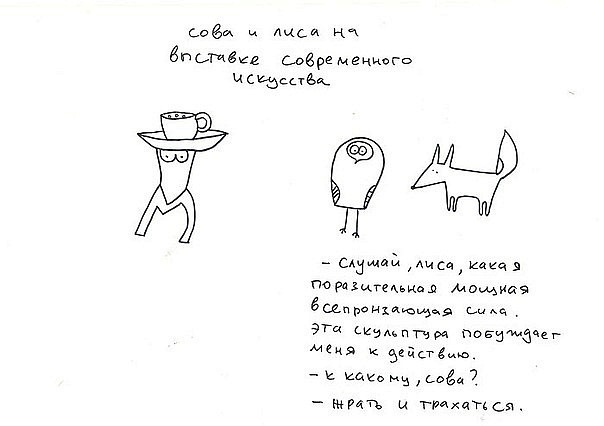 сова и лиса на
выставке современного
искусства
– слушай, лиса, какая
поразительная мощная
всепронзающая сила.
эта скульптура побуждает
меня к действию.
– к какому, сова?
– жрать и трахаться.